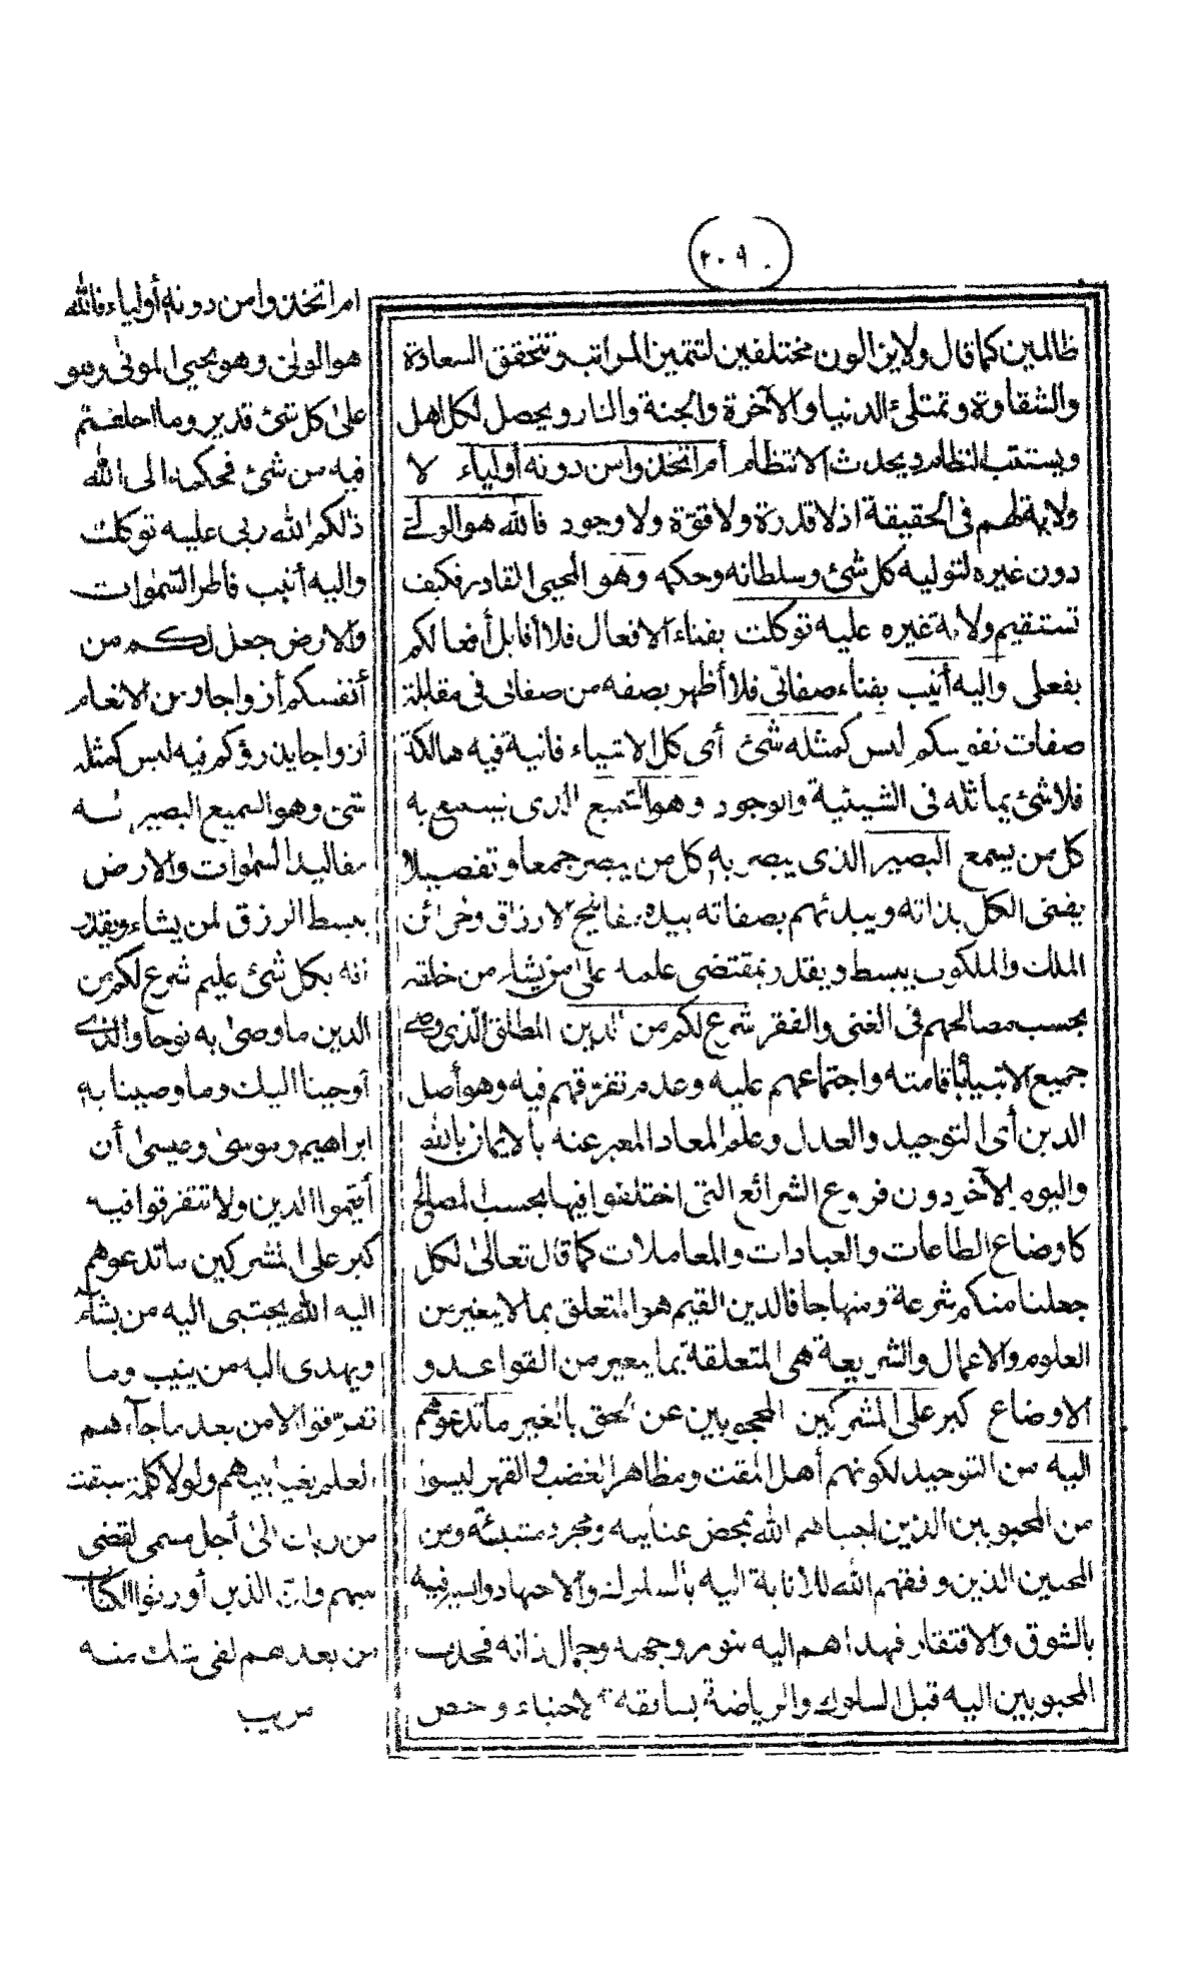 ٢٠٩
ظالمين كما قال ولا يزالون مختلفين لتتميز المراتب وتتحقق السعادة
والشقاوة وتمتلئ الدنيا والآخرة والجنة والنار ويحصل لكل اهل
ويستتب النظام ويحدث الانتظام أم اتخذوا من دونه أولياء لا
ولاية لهم في الحقيقة اذ لا قدرة ولا قوّة ولا وجود فالله هو الولي
دون غيره لتوليه كل شئ وسلطانه وحكمه وهو المحيي القادر فكيف
تستقيم ولاية غيره عليه توكلت بفناء الافعال فلا أقابل أفعالكم
بفعلي واليه أنيب بفناء صفاتي فلا أظهر بصفه من صفاتي في مقابلة
صفات نفوسكم ليس كمثله شئ أي كل الاشياء فانية فيه هالكة
فلا شئ يماثله في الشيئية والوجود وهو السّميع الذي يسمع به
كل من يسمع البصير الذي يبصر به كل من يبصر جمعا وتفصيلا
يفنى الكل بذاته ويبدئهم بصفاته بيده مفاتيح الارزاق وخزائن
الملك والملكوت يبسط ويقدر بمقتضى علمه على من يشاء من خلقه
بحسب مصالحهم في الغنى والفقر شرع لكم من الدين المطلق الّذي وصى
جميع الانبياء باقامته واجتماعهم عليه وعدم تفرّقهم فيه وهو أصل
الدين أي التوحيد والعدل وعلم المعاد المعبر عنه بالايمان بالله
واليوم الآخر دون فروع الشرائع التي اختلفوا فيها بحسب المصالح
كاوضاع الطاعات والعبادات والمعاملات كما قال تعالى لكل
جعلنا منكم شرعة ومنهاجا فالدين القيم هو المتعلق بما لا يتغير من
العلوم والاعمال والشريعة هي المتعلقة بما يتغير من القواعد و
الاوضاع كبر على المشركين المحجوبين عن الحق بالغير ما تدعوهم
اليه من التوحيد لكونهم أهل المقت ومظاهر الغضب والقهر ليسوا
من المحبوبين الذين اجتباهم الله بمحض عنايته ومجرد مشيئته ومن
المحبين الذين وفقهم الله للانابة اليه بالسلوك والاجتهاد والسير فيه
بالشوق والافتقار فهداهم اليه بنور وجهه وجمال ذاته فجذب
المحبوبين اليه قبل السلوك والرياضة بسابقة الاجتباء وخص
ام اتخذوا من دونه أولياء فالله
هو الولىّ وهو يحيي الموتى وهو
على كل شئ قدير وما اختلفتم
فيه من شئ فحكمه الى الله
ذلكم الله ربي عليه توكلت
واليه أنيب فاطر السّموات
والارض جعل لكم من
أنفسكم أزواجا ومن الانعام
أزواجا يذرؤكم فيه ليس كمثله
شئ وهو السميع البصير له
مقاليد السموات والارض
يبسط الرزق لمن يشاء ويقدر
انه بكل شئ عليم شرع لكم من
الدين ما وصى به نوحا والذي
أوحينا اليك وما وصينا به
ابراهيم وموسى وعيسى أن
أقيموا الدين ولا تتفرقوا فيه
كبر على المشركين ما تدعوهم
اليه الله يجتبي اليه من يشاء
ويهدي اليه من ينيب وما
تفرّقوا الا من بعد ما جاءهم
العلم بغيا بينهم ولولا كلمة سبقت
من ربك الى أجل مسمى لقضى
بينهم وانّ الذين أورثوا الكتاب
من بعدهم لفي شك منه
مريب